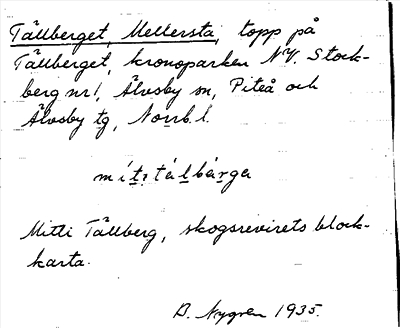 Tällberget, Mellersta, topp på
Tällberget, kronoparken NV. Stock-
berg nr 1, Älvsby sn, Piteå och
Älvsby tg, Norrb. l.
Mitti Tällberg, skogsrevirets block-
karta.
B. Nygren 1935.